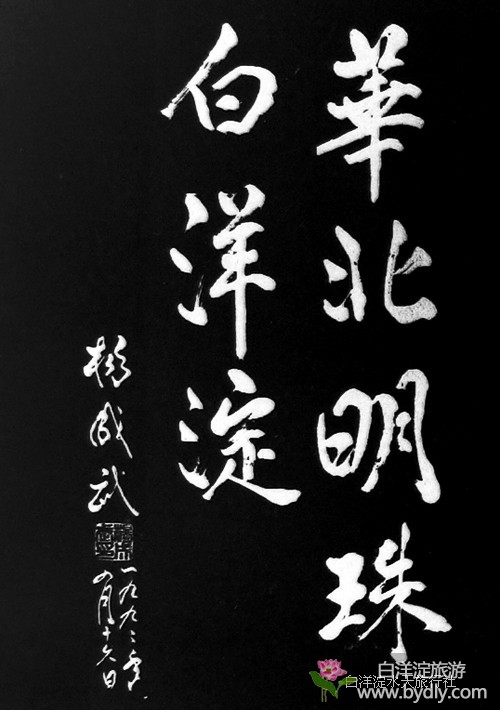 華北明珠
白洋淀
楊成武
一九九二年
九月十六日
白洋淀旅游
白洋淀水天旅行社
www.bydly.com